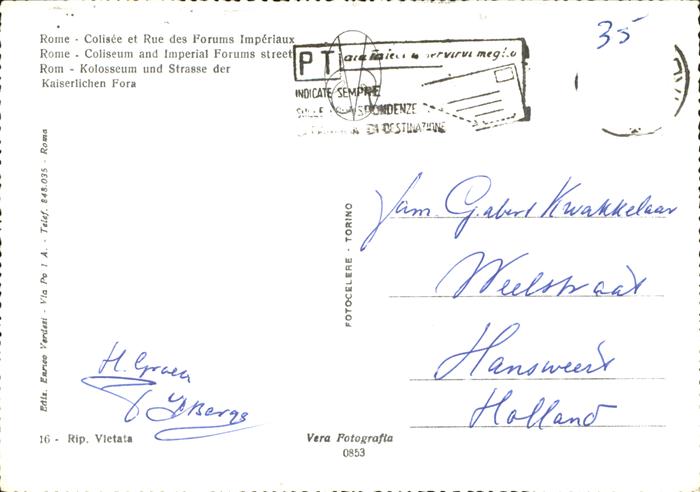 Rome - Colisée et Rue des Forums Impériaux
Rome - Coliseum and Imperial Forums street
Rom - Kolosseum und Strasse der
Kaiserlichen Fora
35
PT aiutateci a servirvi meglio
INDICATE SEMPRE
SULLE CORRISPONDENZE
DI DESTINAZIONE
Ediz. Enrico Verdesi - Via Po 1 A. - Telef. 848.035 - Roma
FOTOCELERE - TORINO
Fam. G. abert Kwakkelaar
Weelstraat
Hansweert
Holland
H. Groen
16 - Rip. Vietata
Vera Fotografia
0853